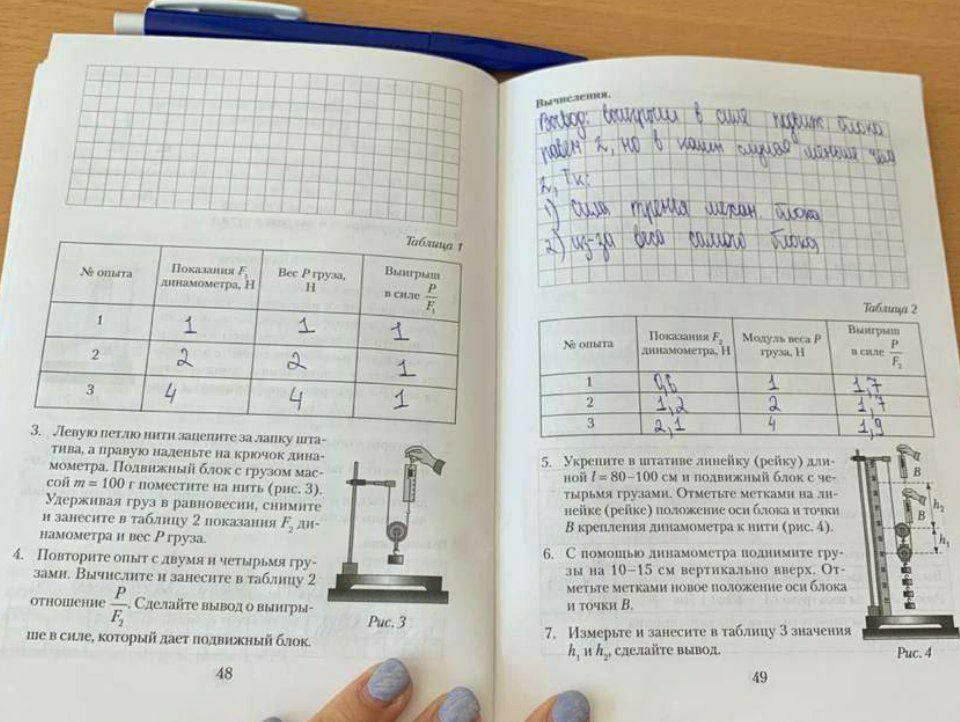 Таблица 1
№ опыта
Показания F₁ динамометра, Н
Вес P груза, Н
Выигрыш в силе P/F₁
1 1 1 1
2 2 2 1
3 4 4 1
3. Левую петлю нити зацепите за лапку шта-
тива, а правую наденьте на крючок дина-
мометра. Подвижный блок с грузом мас-
сой m = 100 г поместите на нить (рис. 3).
Удерживая груз в равновесии, снимите
и занесите в таблицу 2 показания F₂ ди-
намометра и вес P груза.
4. Повторите опыт с двумя и четырьмя гру-
зами. Вычислите и занесите в таблицу 2
отношение P/F₂. Сделайте вывод о выигры-
ше в силе, который дает подвижный блок.
Рис. 3
48
Вычисления.
Вывод: выигрыш в силе подвиж блока
равен 2, но в нашем случае меньше чем
2, Тк:
1) сила трения механ блока
2) из-за веса самого блока
Таблица 2
№ опыта
Показания F₂ динамометра, Н
Модуль веса P груза, Н
Выигрыш в силе P/F₂
1 0,6 1 1,7
2 1,2 2 1,7
3 2,1 4 1,9
5. Укрепите в штативе линейку (рейку) дли-
ной l = 80–100 см и подвижный блок с че-
тырьмя грузами. Отметьте метками на ли-
нейке (рейке) положение оси блока и точки
B крепления динамометра к нити (рис. 4).
6. С помощью динамометра поднимите гру-
зы на 10–15 см вертикально вверх. От-
метьте метками новое положение оси блока
и точки B.
7. Измерьте и занесите в таблицу 3 значения
h₁ и h₂, сделайте вывод.
B
B
h₂
h₁
Рис. 4
49